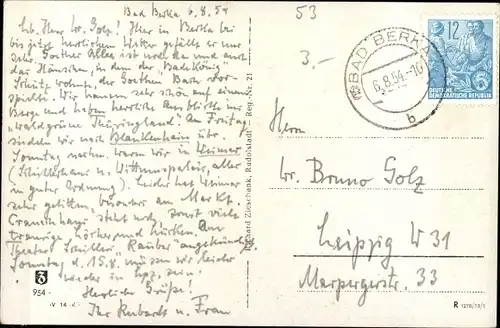 Bad Berka 6.8.54
Lb. Herr Dr. Golz! Hier in Berka bei
bis jetzt herrlichem Wetter gefällt es mir
sehr. Goethes Allee ist noch da und auch
das Häuschen, in dem der "Badekönig"
Schütz wohnte, der Goethen Bach vor-
spielte. Wir waren sehr schön auf einem
Berge und hatten herrliche Ausblicke ins
"waldgrüne Thüringland". Am Freitag
sind wir nach Blankenhain
Sonntag nachm. waren wir in Weimar
(Schillerhaus u. Wittumspalais, alles
in guter Ordnung) Leider hat Weimar
sehr gelitten, besonders am Markt.
Cranachhaus steht noch, sonst viele
traurige Löcher und Lücken. Am
Theater Schillers "Räuber" angekündigt
Sonntag d. 15.8. müssen wir leider
wieder in Lpz. sein!
Herzliche Grüße!
Ihr u. Frau
53
3.-
BAD BERKA
6.8.54.-10
b
12
DEUTSCHE DEMOKRATISCHE REPUBLIK
Herrn
Dr. Bruno Golz
Leipzig W 31
Marpergerstr. 33
Richard Zieschank, Rudolstadt - Reg.-Nr. 21
954
R